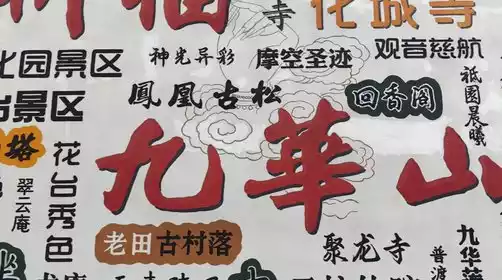 祈福
寺
化城寺
神光异彩
摩空圣迹
观音慈航
化园景区
台景区
鳳凰古松
回香阁
祇園晨曦
塔
花台秀色
翠云庵
九華山
老田古村落
聚龙寺
普渡
九华